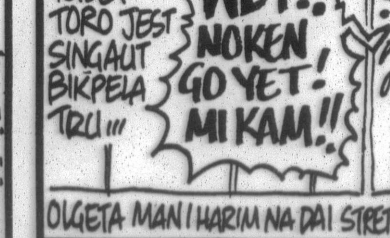 TORO JEST
SINGAUT
BIKPELA
TRU...
NOKEN
GO YET!
MI KAM!!
OLGETA MAN I HARIM NA DAI STRET